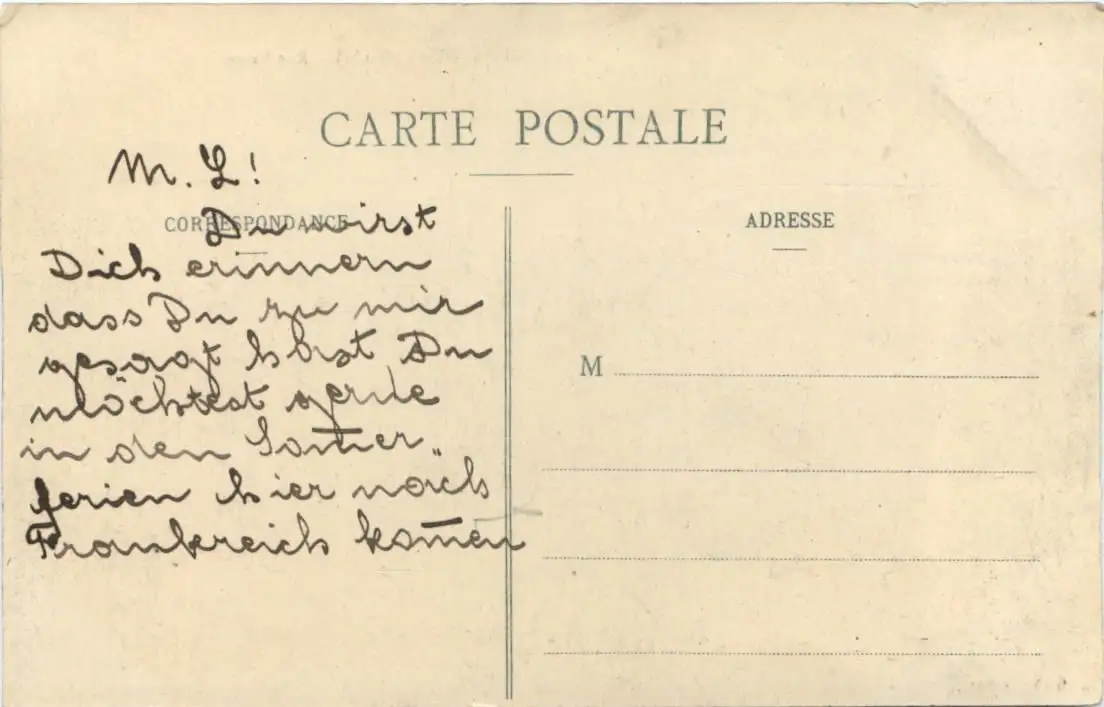 CARTE POSTALE
M. L!
CORRESPONDANCE
ADRESSE
Du wirst
Dich erinnern
dass Du zu mir
gesagt hast Du
möchtest gerne
in den Som̅er„
ferien hier nach
M
Frankreich kom̅en